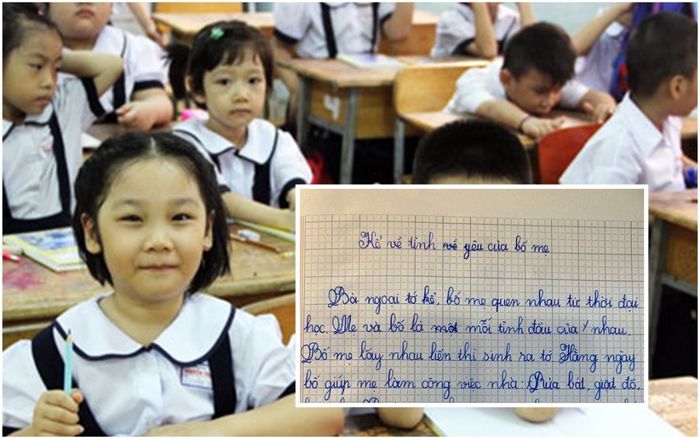 Kể về tình yêu của bố mẹ
Bà ngoại tớ kể, bố mẹ quen nhau từ thời đại
học. Mẹ và bố là mối tình đầu của nhau.
Bố mẹ lấy nhau liền thì sinh ra tớ Hằng ngày
bố giúp mẹ làm công việc nhà: Rửa bát, giặt đồ,